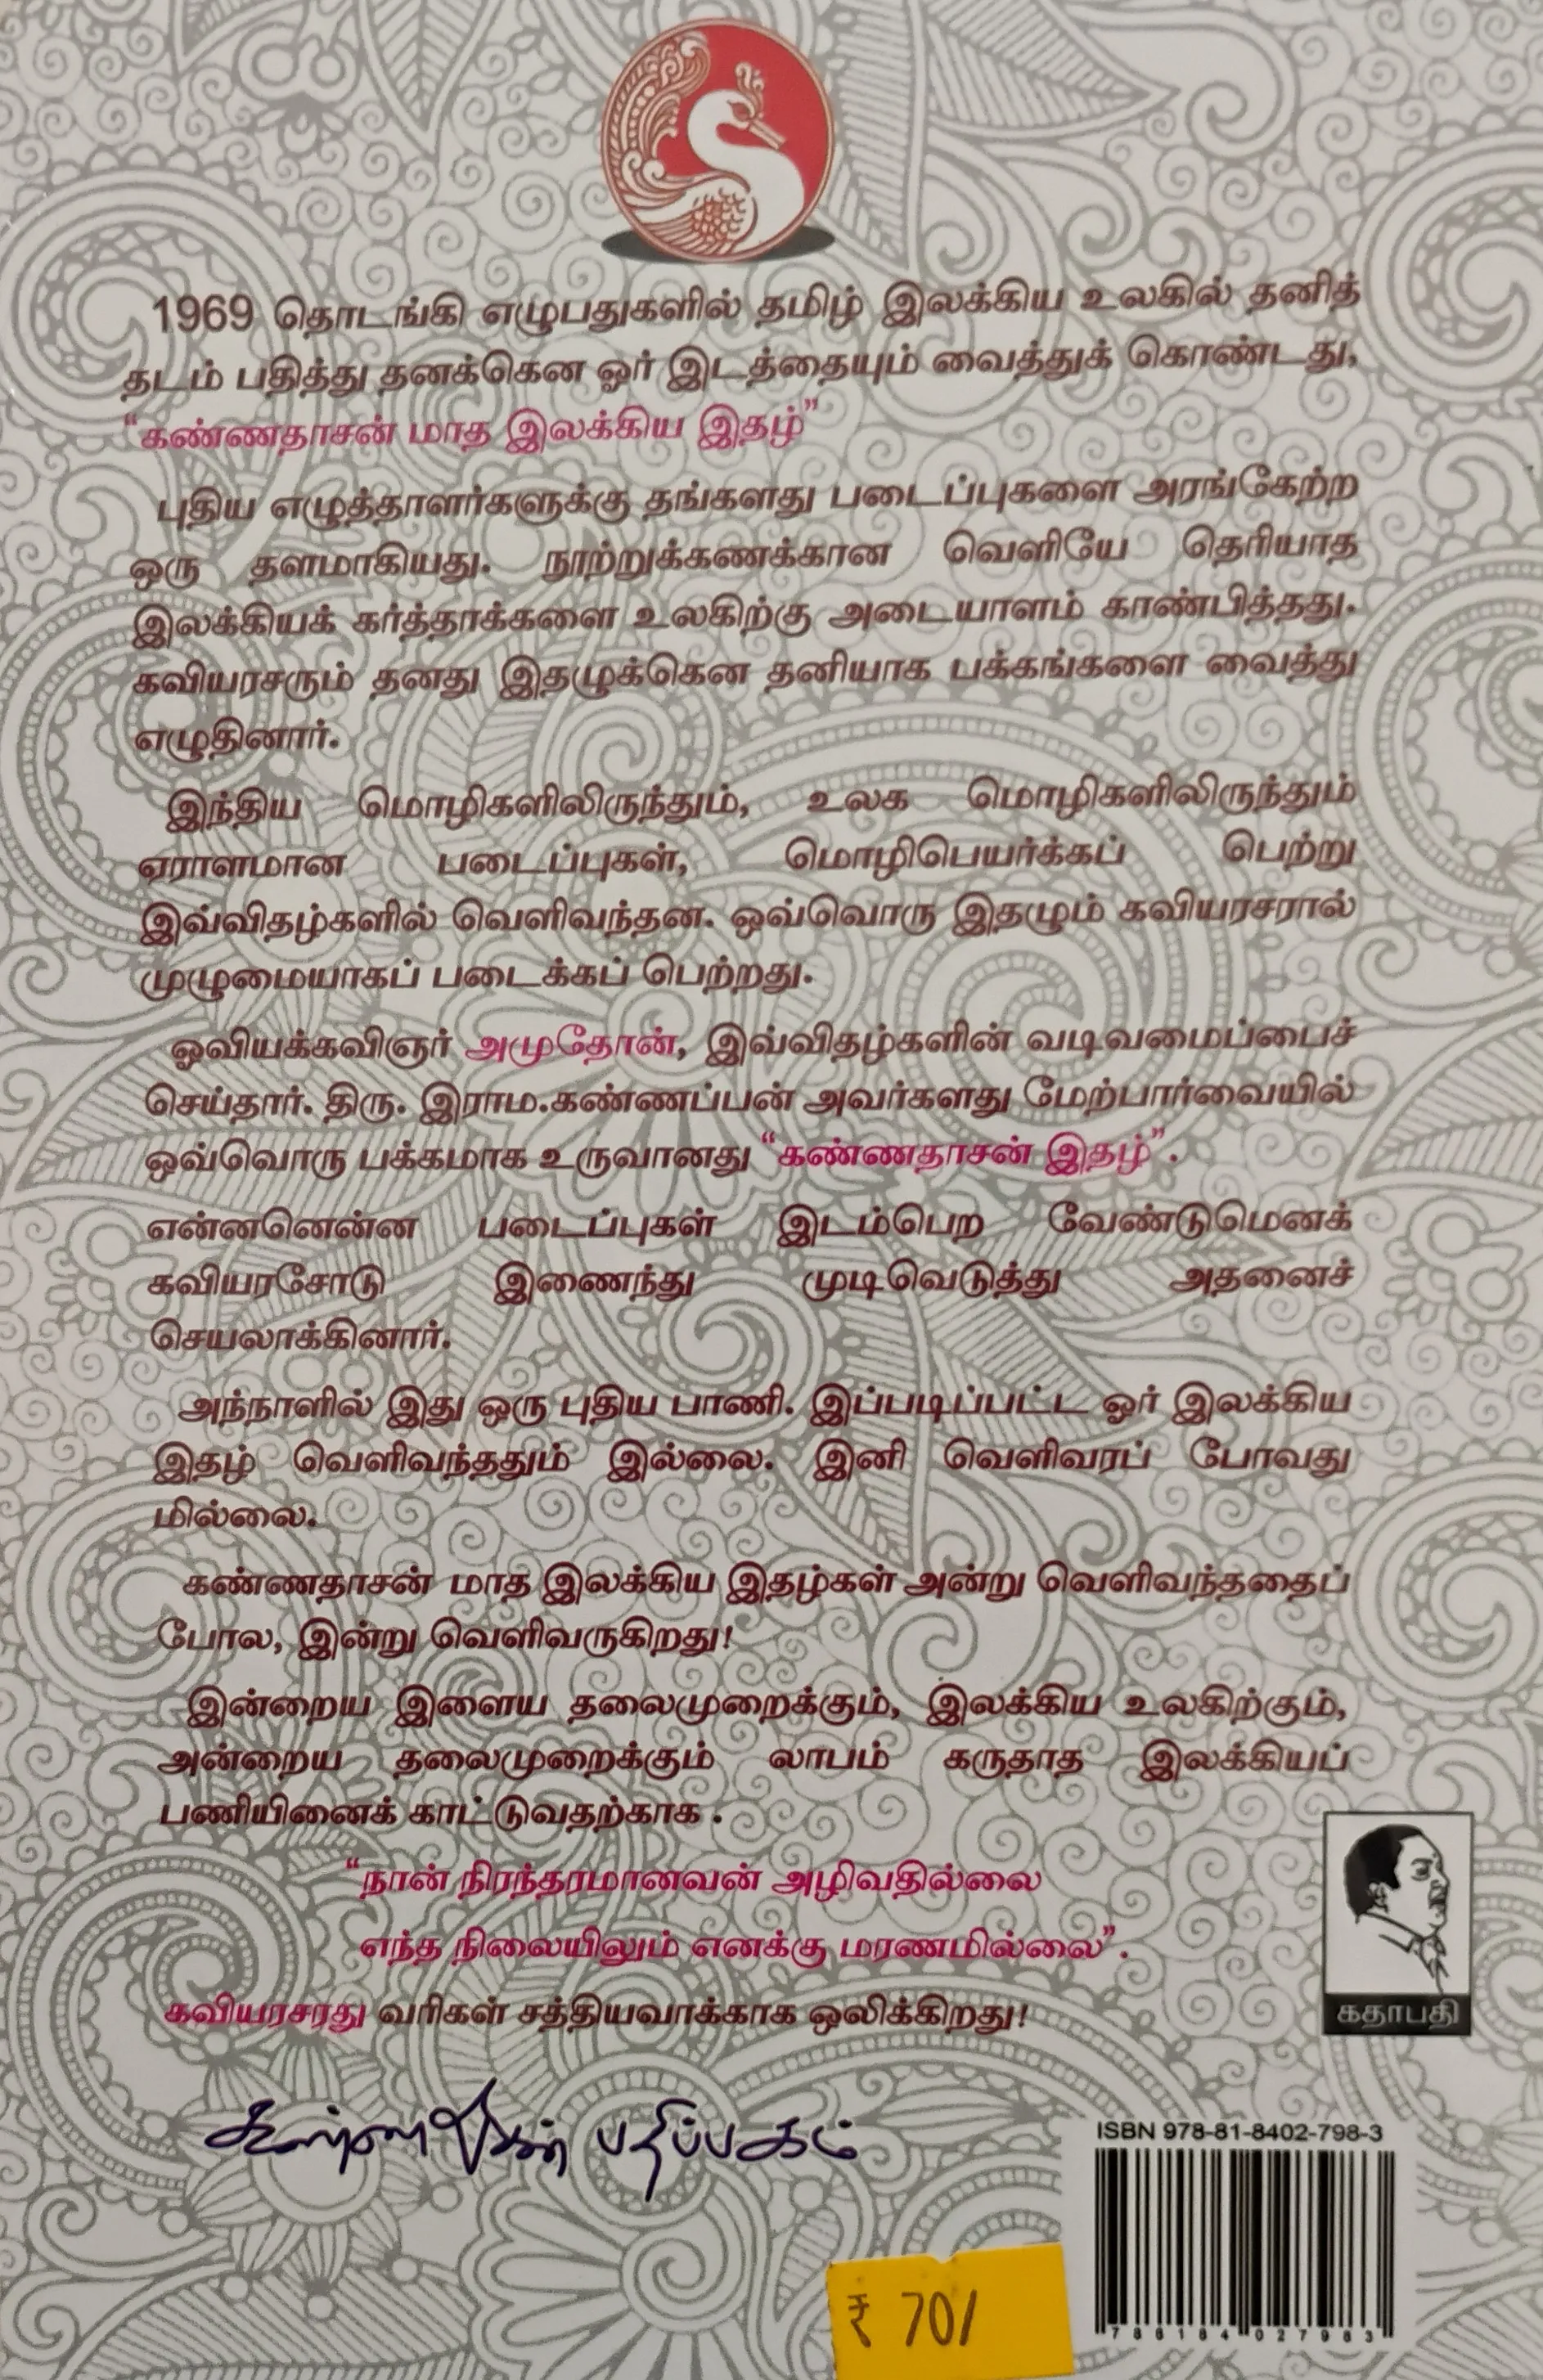 1969 தொடங்கி எழுபதுகளில் தமிழ் இலக்கிய உலகில் தனித்
தடம் பதித்து தனக்கென ஓர் இடத்தையும் வைத்துக் கொண்டது,
“கண்ணதாசன் மாத இலக்கிய இதழ்”
புதிய எழுத்தாளர்களுக்கு தங்களது படைப்புகளை அரங்கேற்ற
ஒரு தளமாகியது. நூற்றுக்கணக்கான வெளியே தெரியாத
இலக்கியக் கர்த்தாக்களை உலகிற்கு அடையாளம் காண்பித்தது.
கவியரசரும் தனது இதழுக்கென தனியாக பக்கங்களை வைத்து
எழுதினார்.
இந்திய மொழிகளிலிருந்தும், உலக மொழிகளிலிருந்தும்
ஏராளமான படைப்புகள், மொழிபெயர்க்கப் பெற்று
இவ்விதழ்களில் வெளிவந்தன. ஒவ்வொரு இதழும் கவியரசரால்
முழுமையாகப் படைக்கப் பெற்றது.
ஓவியக்கவிஞர் அமுதோன், இவ்விதழ்களின் வடிவமைப்பைச்
செய்தார். திரு. இராம.கண்ணப்பன் அவர்களது மேற்பார்வையில்
ஒவ்வொரு பக்கமாக உருவானது “கண்ணதாசன் இதழ்”.
என்னனென்ன படைப்புகள் இடம்பெற வேண்டுமெனக்
கவியரசோடு இணைந்து முடிவெடுத்து அதனைச்
செயலாக்கினார்.
அந்நாளில் இது ஒரு புதிய பாணி. இப்படிப்பட்ட ஓர் இலக்கிய
இதழ் வெளிவந்ததும் இல்லை. இனி வெளிவரப் போவது
மில்லை.
கண்ணதாசன் மாத இலக்கிய இதழ்கள் அன்று வெளிவந்ததைப்
போல, இன்று வெளிவருகிறது!
இன்றைய இளைய தலைமுறைக்கும், இலக்கிய உலகிற்கும்,
அன்றைய தலைமுறைக்கும் லாபம் கருதாத இலக்கியப்
பணியினைக் காட்டுவதற்காக .
“நான் நிரந்தரமானவன் அழிவதில்லை
எந்த நிலையிலும் எனக்கு மரணமில்லை”.
கவியரசரது வரிகள் சத்தியவாக்காக ஒலிக்கிறது!
கதாபதி
கண்ணதாசன் பதிப்பகம்
ISBN 978-81-8402-798-3
788184 027983
₹ 70/